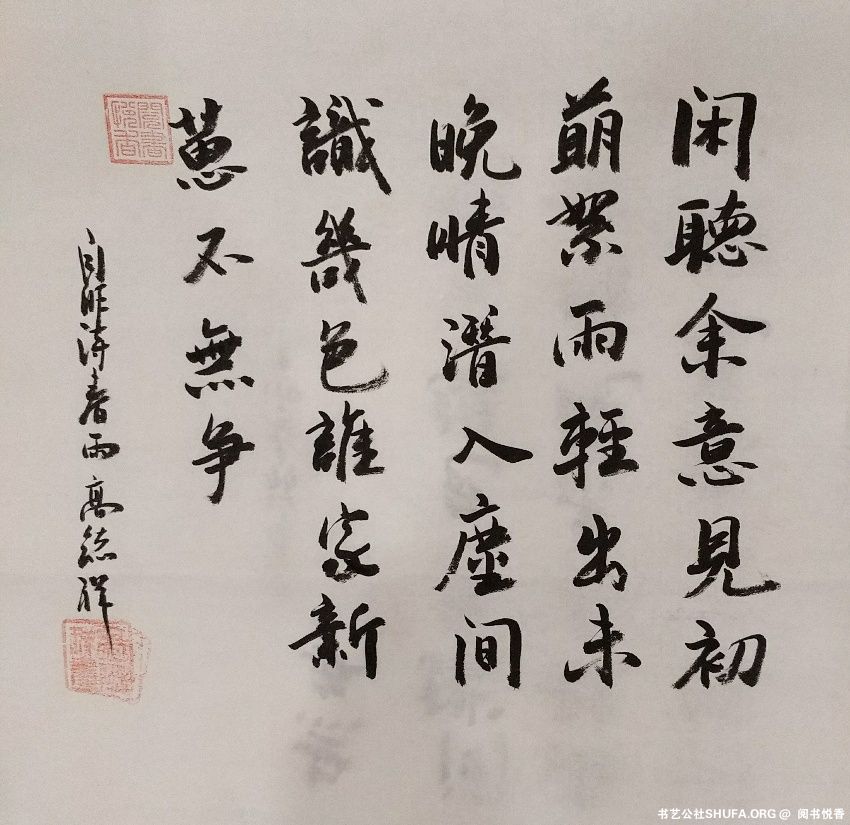 闲聽余意見初
萌絮雨輕出未
晚晴潛入塵間
識幾色誰家新
蔥不無争
自作诗春雨 高德祥
閱書悅香
书艺公社SHUFA.ORG @ 阅书悦香